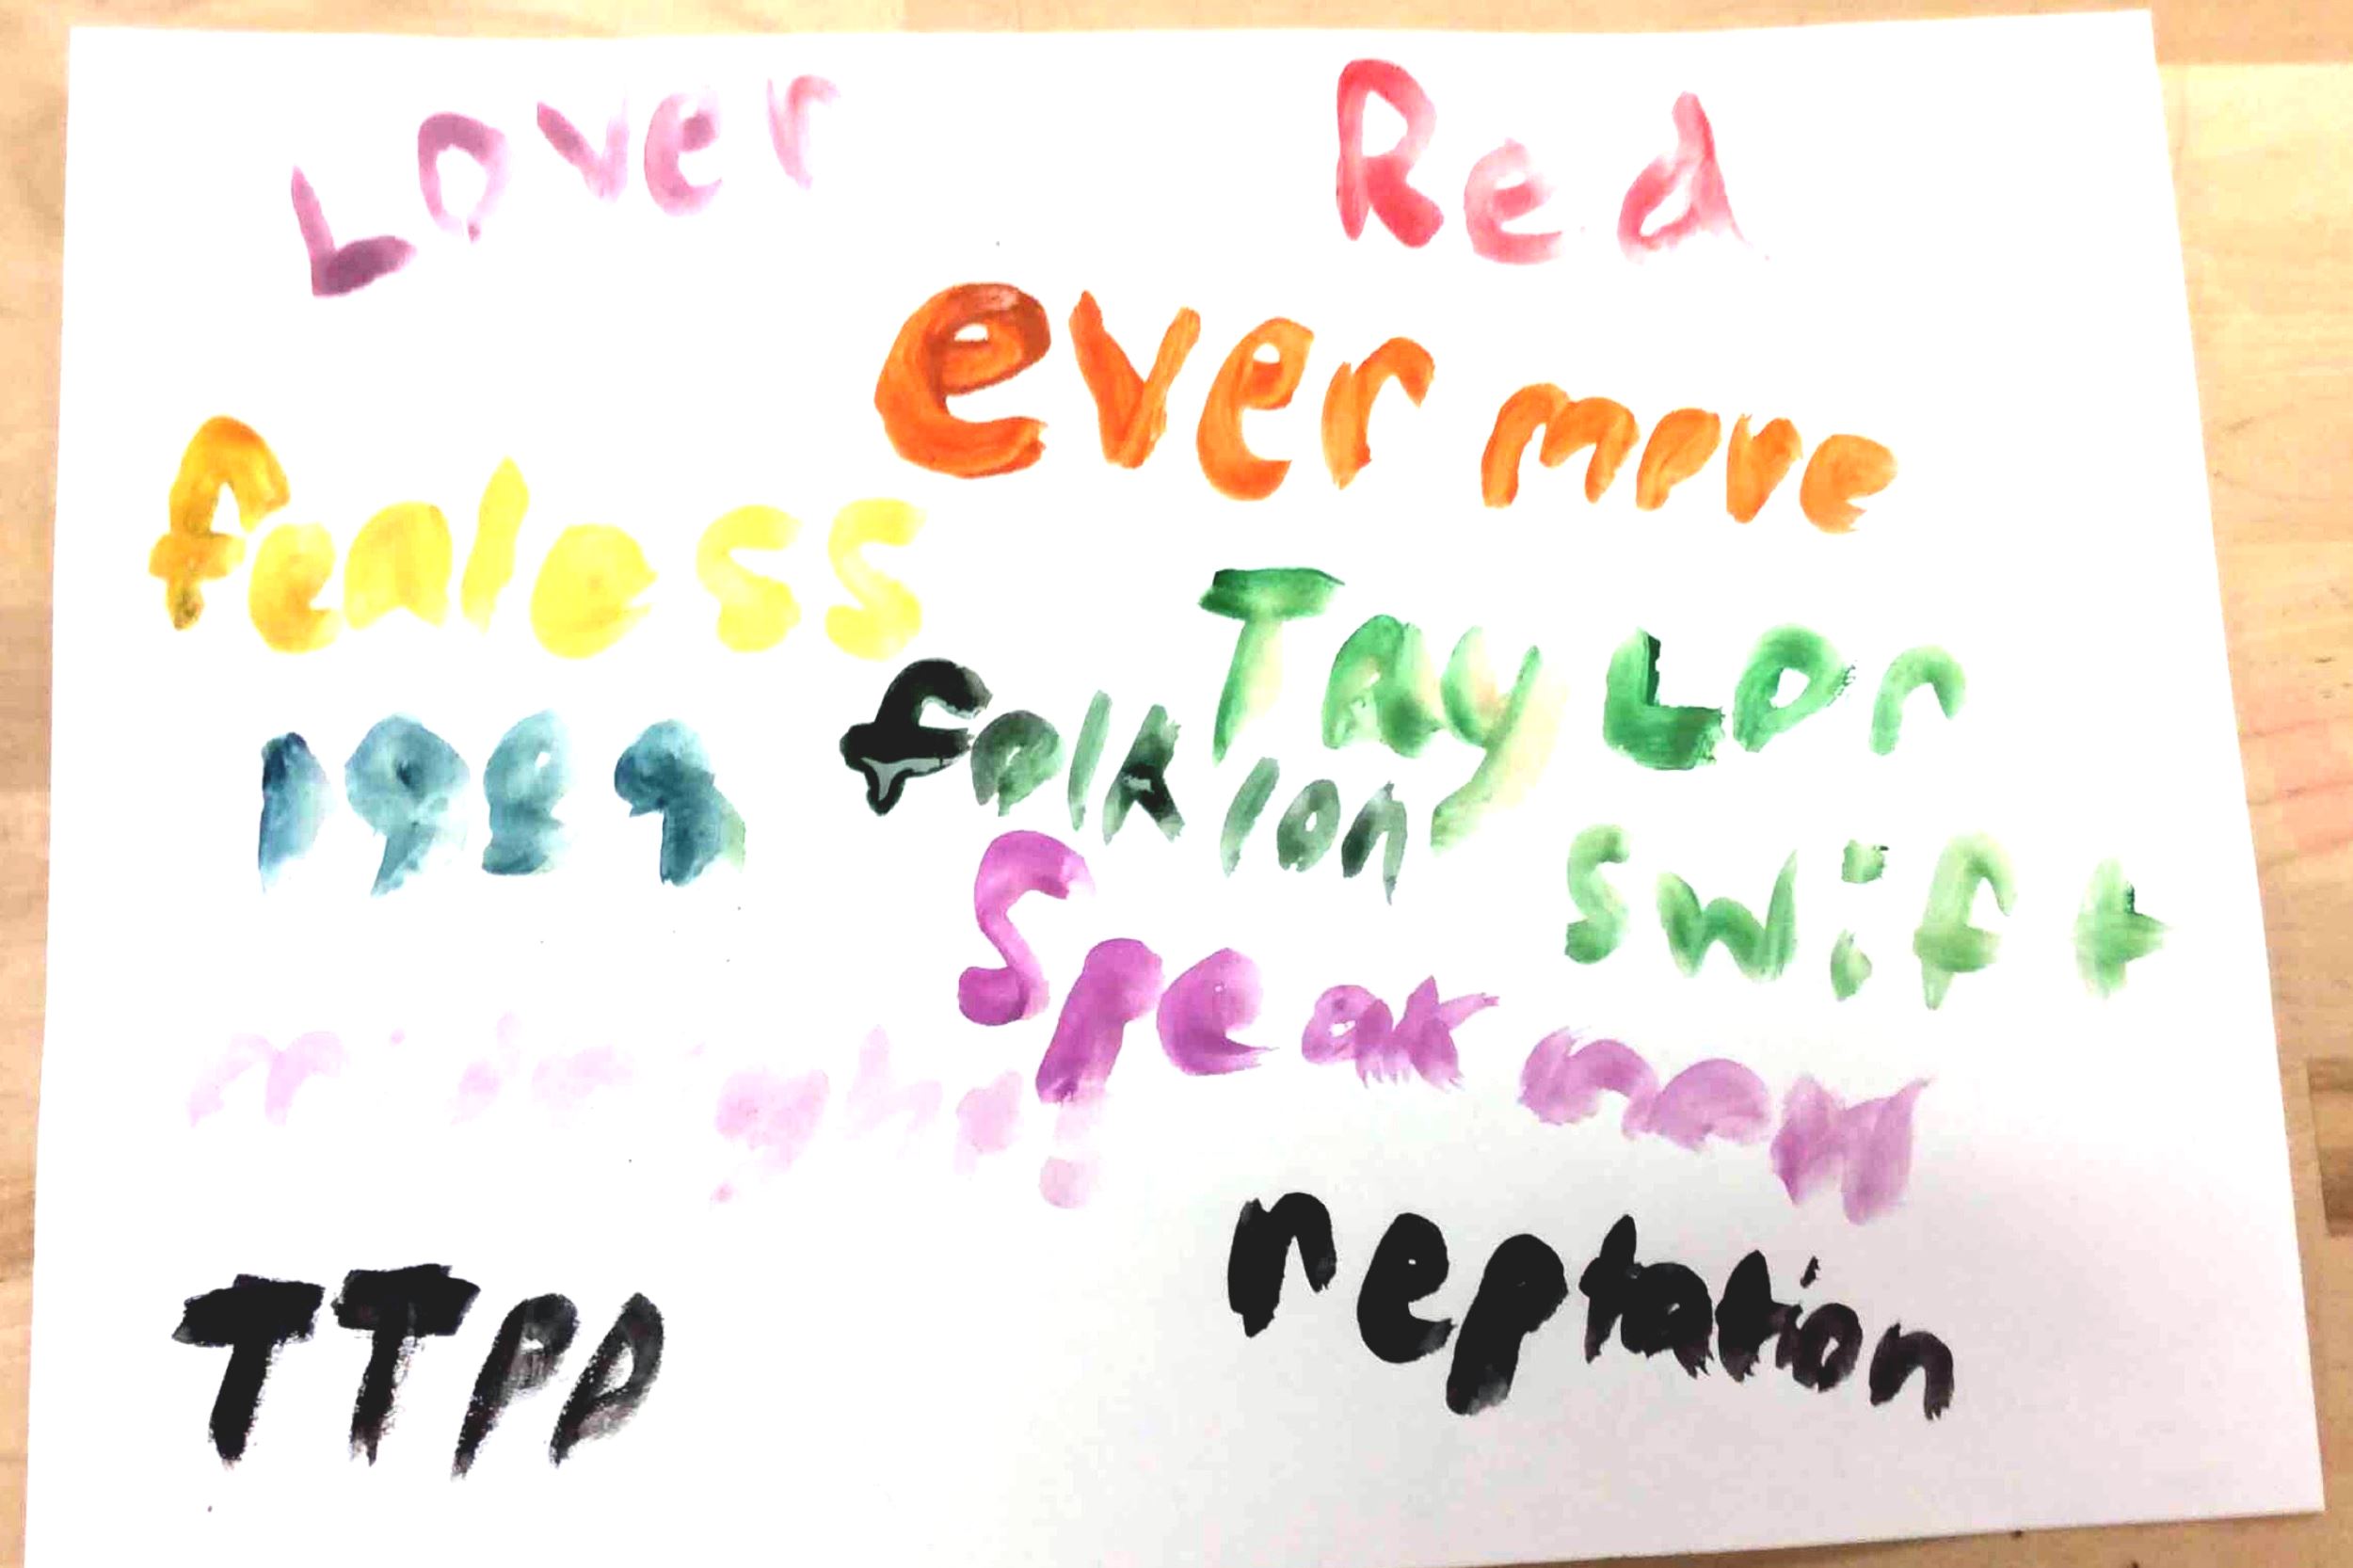 Lover Red
ever move
fealess
Taylor
1989 folk lor
swift
Speak now
TTPD reptation